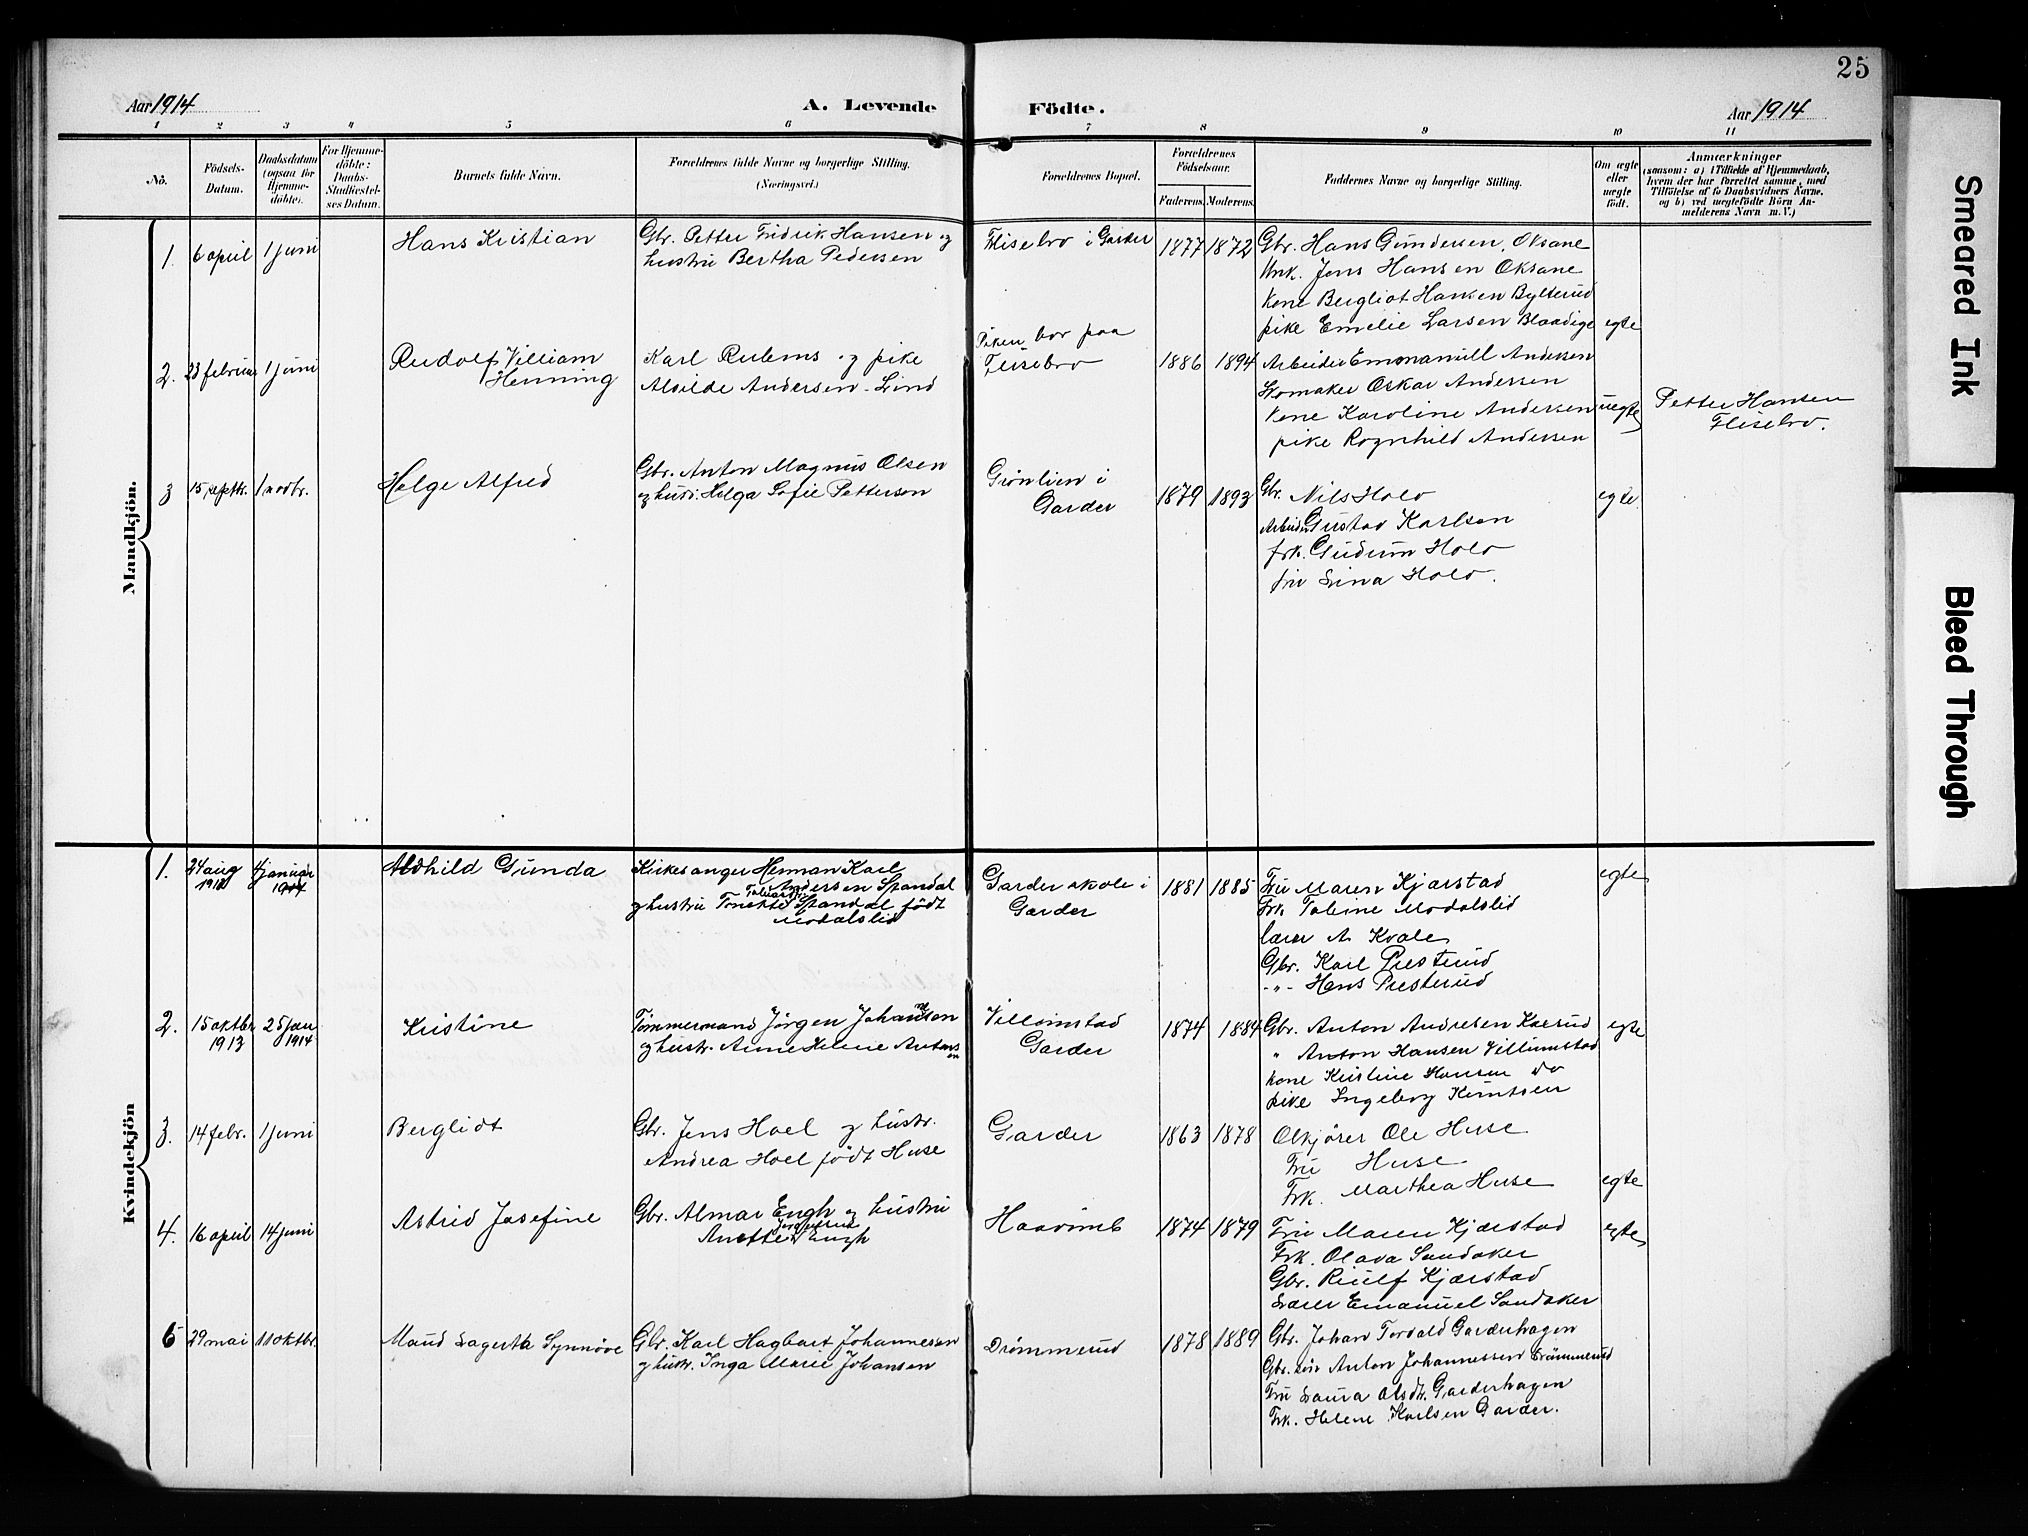 25
Aar 1914
A. Levende
Födte.
Aar 1914
1 2 3 4 5 6 7 8 9 10 11
No.
Födsels-
Datum.
Daabsdatum
(ogsaa for
Hjemme-
döbte).
For Hjemme-
döbte:
Daabs-
Stadfæstel-
ses Datum.
Barnets fulde Navn.
Forældrenes fulde Navne og borgerlige Stilling.
(Næringsvei.)
Forældrenes Bopæl.
Forældrenes
Födselsaar.
Faderens. Moderens.
Faddernes Navne og borgerlige Stilling.
Om ægte
eller
uægte
födt.
Anmærkninger
(saasom: a) i Tilfælde af Hjemmedaab,
hvem der har forrettet samme, med
Tilföielse af to Daabsvidners Navne.
og b) ved uegtefödte Börn An-
melderens Navn m. V.)
Mandkjön.
1. 6 april 1 juni
Hans Kristian
Gbr. Petter Fridrik Hansen og
hustru Bertha Pedersen
Flisebro i Garder
1877 1872
Gbr. Hans Gundersen, Oksane
Unk. Jens Hansen Oksane
Kone Bergliot Hansen Bylterud
pike Emelie Larsen Blaadige
egte
2. 23 februar 1 juni
Rudolf Villiam
Henning
Karl Rubems og pike
Alvilde Andersen-Lind
Piken bor paa
Flisebro
1886 1894
Arbeider Emmanuell Andersen
Skomaker Oskar Andersen
Kone Karoline Andersen
pike Ragnhild Andersen
uegte
Petter Hansen
Flisebro.
3 15 septr. 1 novbr.
Helge Alfred
Gbr. Anton Magnus Olsen
og hust. Helga Sofie Petterson
Grønlien i
Garder
1879 1893
Gbr. Nils Holo
Arbeider Gustav Karlsen
frk. Gudrun Holo
fru Lina Holo.
egte
Kvindekjön
1. 24 aug 4 januar
1914
Aldhild Gunda
Kirkesanger Herman Karl
Andersen Spandal
og hustru Tonette Spandal født
Modalslid
Garder skole i
Garder
1881 1885
Fru Maren Kjærstad
Frk. Tobine Modalslid
lærer A. Kvale
Gbr. Karl Presterud
-"- Hans Presterud
egte
2. 15 oktbr 25 jan
1913 1914
Kristine
Tømmermand Jørgen Johansen
og hustr. Anne Helene Antons
en
Villumstad
Garder
1874 1884
Gbr. Anton Andresen Kærud
" Anton Hansen Villumstad
kone Kristine Hansen do
pike Ingeborg Knutsen
egte
3. 14 febr. 1 juni
Berglidt
Gbr. Jens Hoel og hustr.
Andrea Hoel født Huse
Garder
1863 1878
Olkjører Ole Huse
Fru Huse
Frk. Marthea Huse
egte
4. 16 april 14 juni
Astrid Josefine
Gbr. Almar Engh og hustru
Anette Engh
Haavimb
1874 1879
Fru Maren Kjærstad
Frk. Olava Sandaker
Gbr. Riulf Kjærstad
Lærer Emanuel Sandaker
egte
5 29 mai 11 oktbr.
Maud Lagerta Synnøve
Gbr. Karl Hagbart Johannesen
og hustr. Inga Marie Johansen
Drømmerud
1878 1889
Gbr. Johan Torvald Garderhagen
Gbr. søn Anton Johannessen Drømmerud
Fru Laura Olsdt. Garderhagen
Frk. Helene Karlsen Garder.
Smeared Ink
Bleed Through